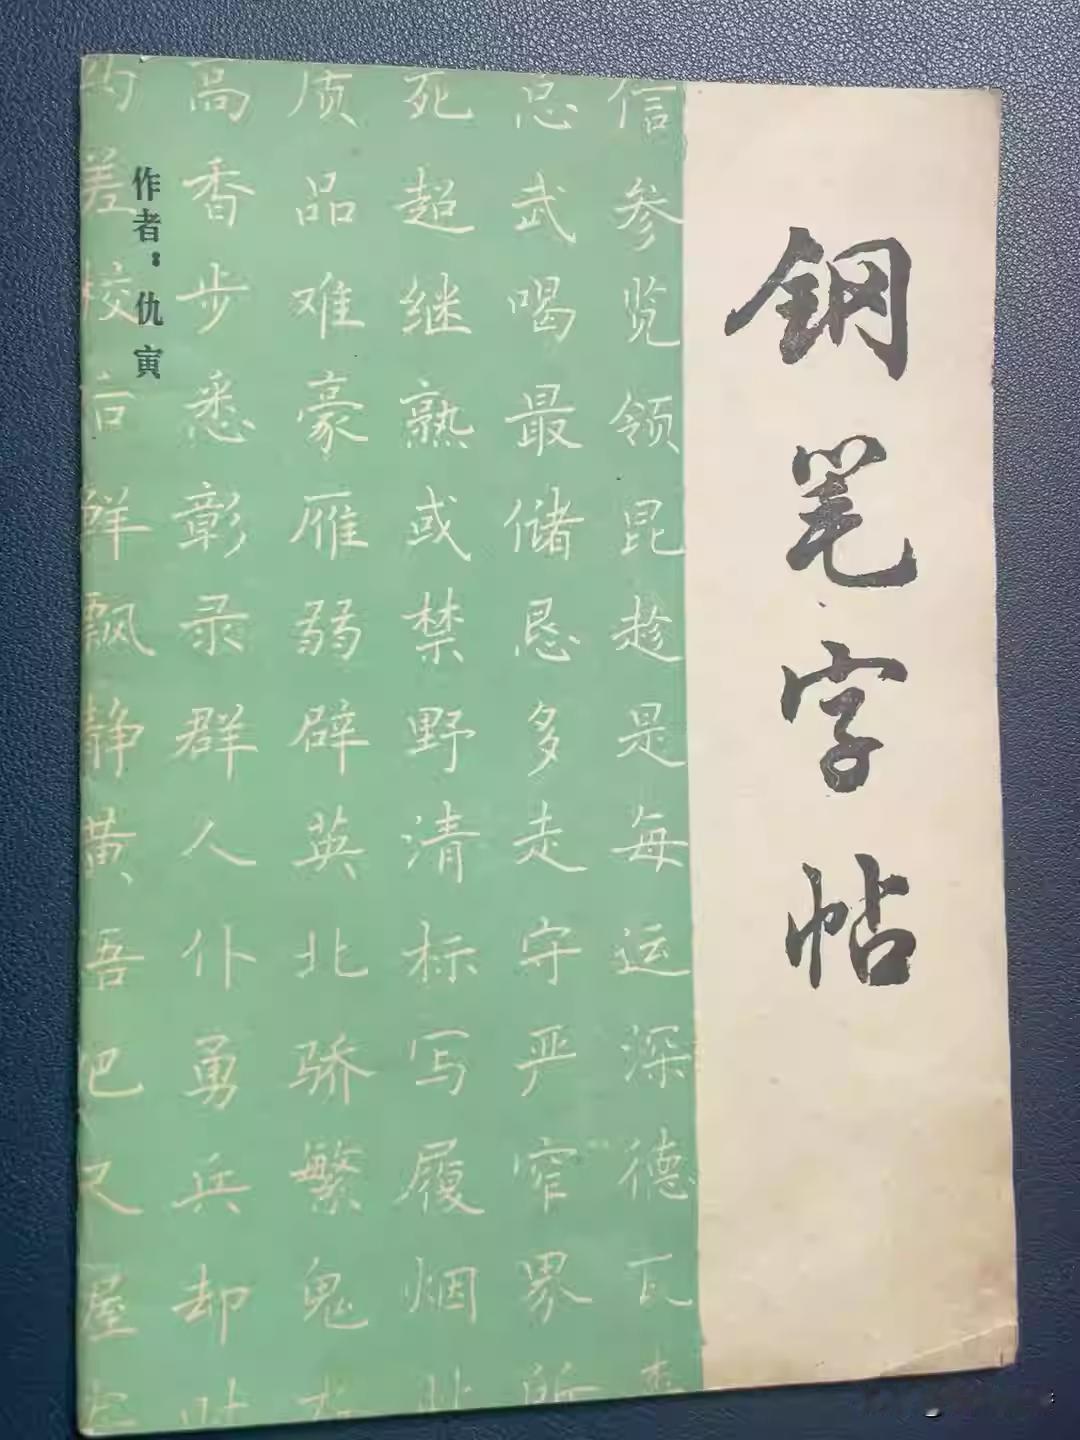 钢笔字帖
信参览领昆趁是每运深德瓦
总武喝最储恳多走守严窄界所
死超继熟或禁野清标写履烟
质品难豪雁弱辟英北骄繁鬼
高香步悉彰录群人仆勇兵却
差校后鲜飘静黄吾吧又屋
作者：仇寅